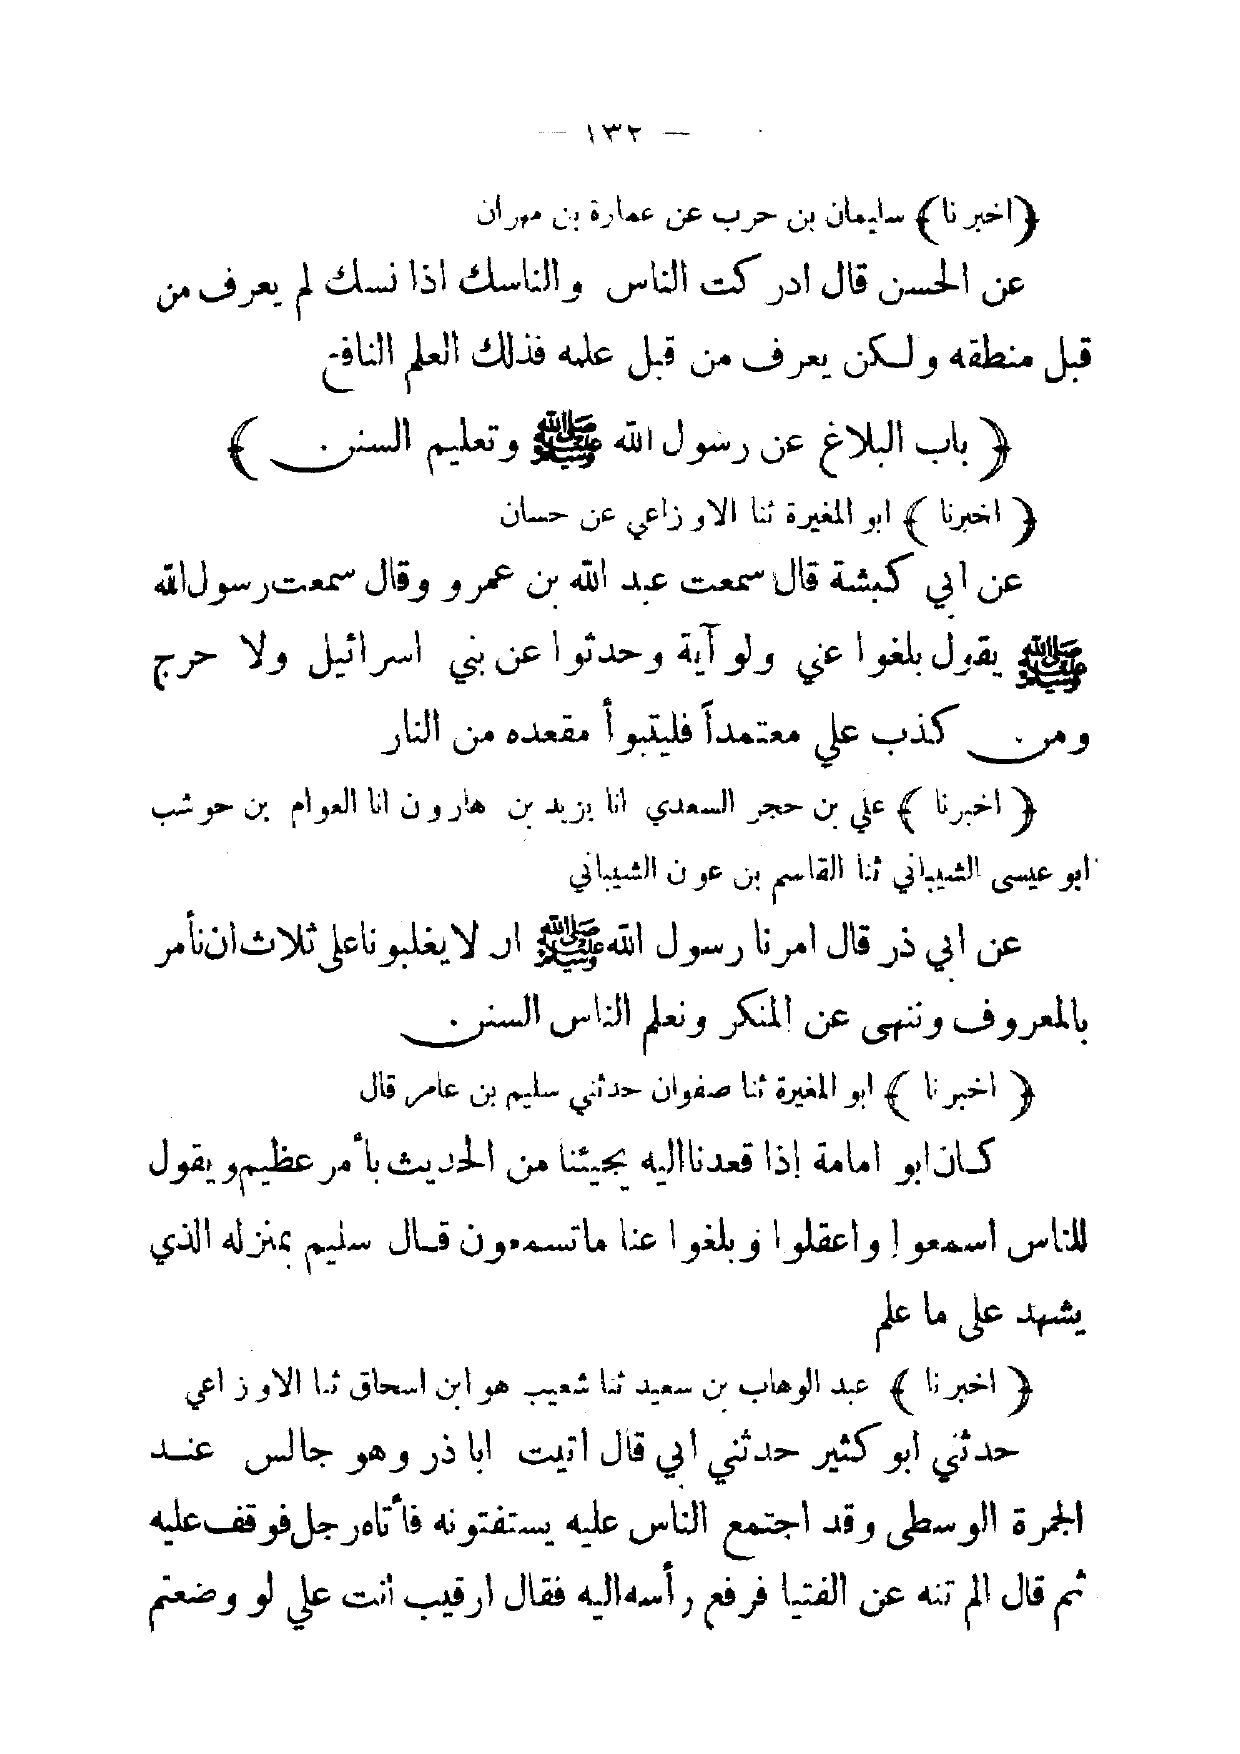 — ١٣٢ —
﴿اخبرنا﴾ سليمان بن حرب عن عمارة بن مهران
عن الحسن قال ادركت الناس والناسك اذا نسك لم يعرف من
قبل منطقه ولكن يعرف من قبل علمه فذلك العلم النافع
﴿ باب البلاغ عن رسول الله ﷺ وتعليم السنن ﴾
﴿ اخبرنا ﴾ ابو المغيرة ثنا الاوزاعي عن حسان
عن ابي كبشة قال سمعت عبد الله بن عمرو وقال سمعت رسول الله
ﷺ يقول بلغوا عني ولو آية وحدثوا عن بني اسرائيل ولا حرج
ومن كذب علي معتمداً فليتبوأ مقعده من النار
﴿ اخبرنا ﴾ علي بن حجر السعدي انا يزيد بن هارون انا العوام بن حوشب
ابو عيسى الشيباني ثنا القاسم بن عون الشيباني
عن ابي ذر قال امرنا رسول الله ﷺ ان لا يغلبونا على ثلاث ان نأمر
بالمعروف وننهى عن المنكر ونعلم الناس السنن
﴿ اخبرنا ﴾ ابو المغيرة ثنا صفوان حدثني سليم بن عامر قال
كان ابو امامة إذا قعدنا اليه يجيئنا من الحديث بأمر عظيم ويقول
للناس اسمعوا واعقلوا وبلغوا عنا ما تسمعون قال سليم بمنزله الذي
يشهد على ما علم
﴿ اخبرنا ﴾ عبد الوهاب بن سعيد ثنا شعيب هو ابن اسحاق ثنا الاوزاعي
حدثني ابو كثير حدثني ابي قال اتيت ابا ذر وهو جالس عند
الجمرة الوسطى وقد اجتمع الناس عليه يستفتونه فأتاه رجل فوقف عليه
ثم قال الم تنه عن الفتيا فرفع رأسه اليه فقال ارقيب انت علي لو وضعتم